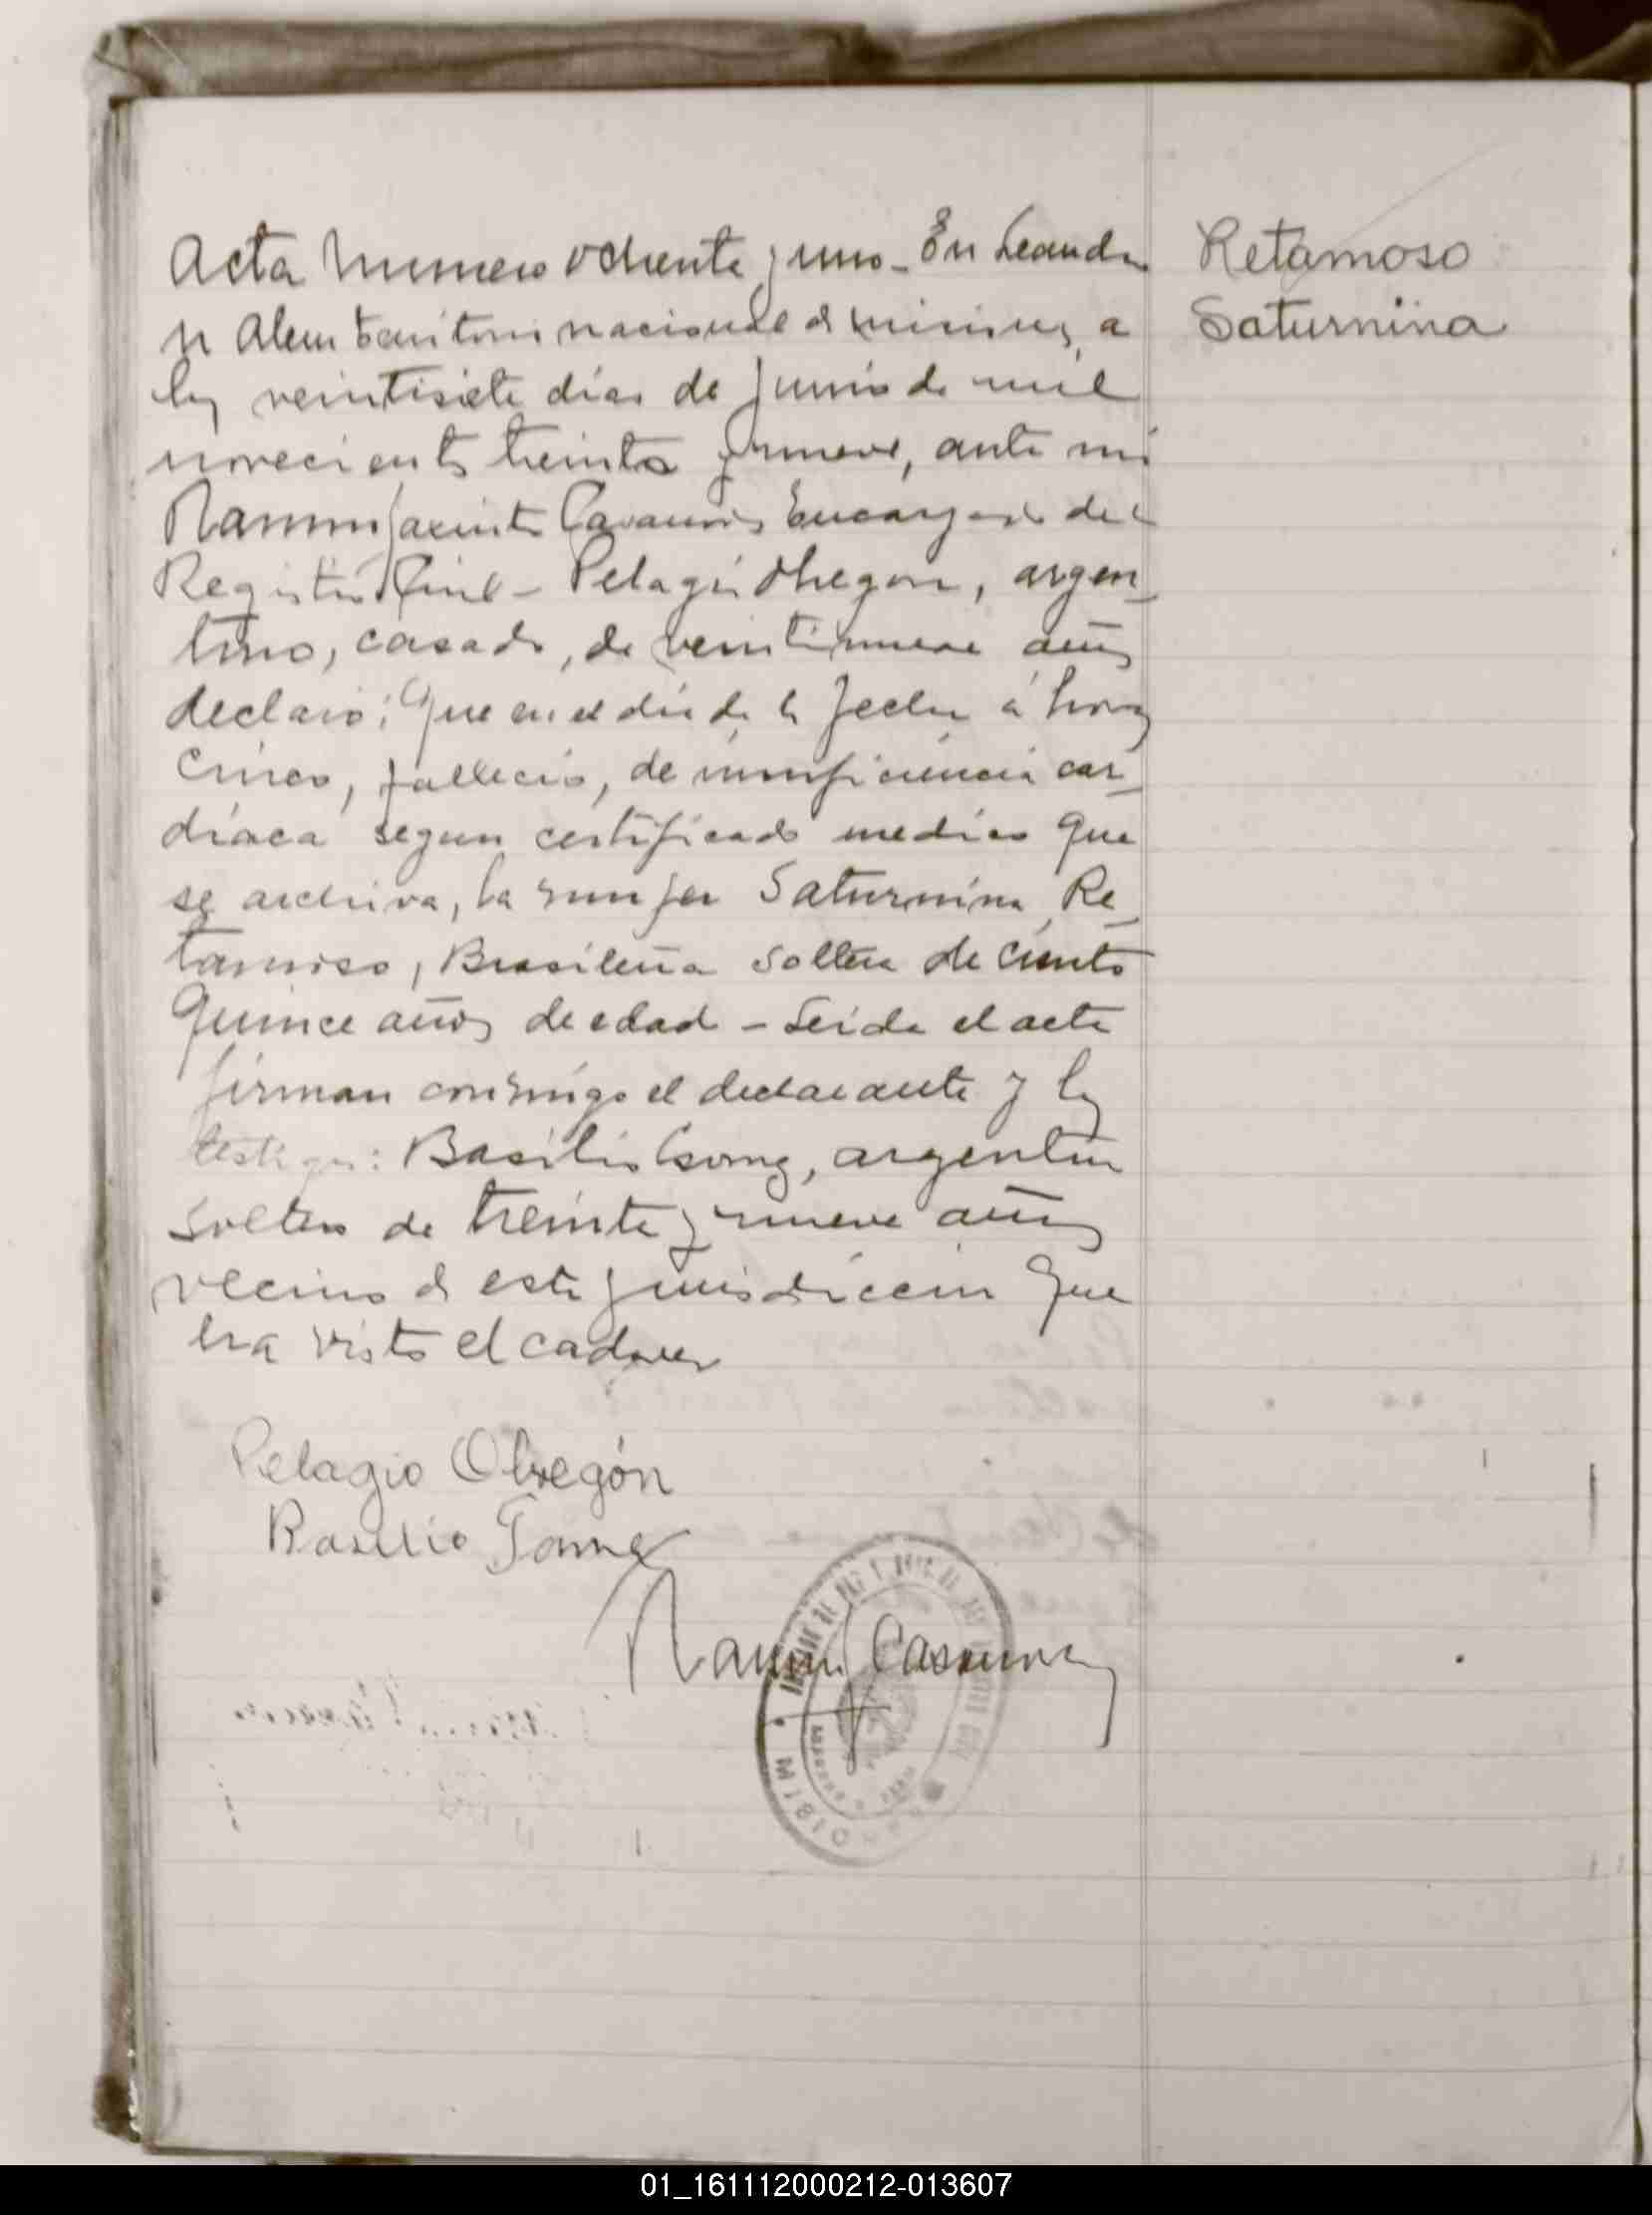 Acta numero ochenta y uno - En Leandro
N Alem territorio nacional de misiones, a
los veintisiete dias de Junio de mil
novecientos treinta y nueve, ante mi
Ramon Jacinto Encargado del
Registro Civil - Pelagio Obregon, argen_
tino, casado, de veintinueve años
declaró: Que en el dia de la fecha á horas
Cinco, fallecio, de insuficiencia car_
diaca segun certificado medico que
se archiva, la mujer Saturnina Re_
tamoso, Brasileña soltera de ciento
quince años de edad - Leida el acta
firman conmigo el declarante y los
testigos: Basilio Gomez, argentino
soltero de treinta y nueve años
vecino de esta jurisdiccion que
ha visto el cadaver
Retamoso
Saturnina
Pelagio Obregón
Basilio Gomez
Ramon J
01_161112000212-013607